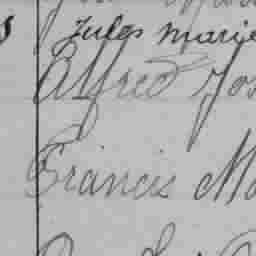 Jules Marie
Alfred Jos
Francis Ma